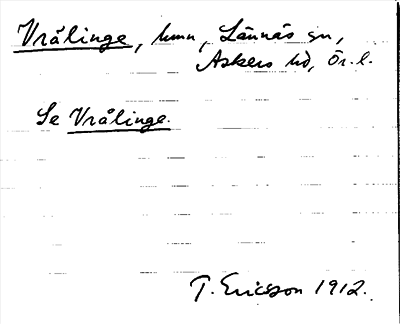 Vrålinge, hmn, Lännäs sn,
Askers hd, Ör. l.
Se Vrålinge.
T. Ericsson 1912.